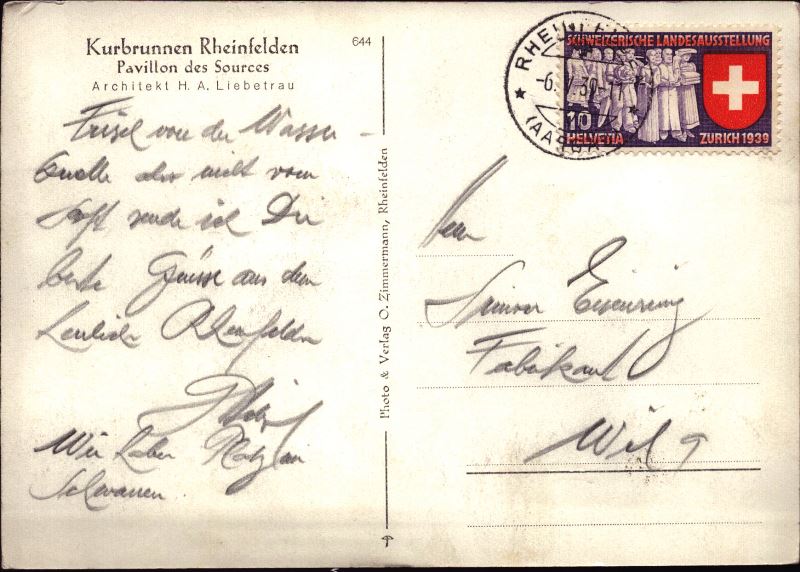 Kurbrunnen Rheinfelden
Pavillon des Sources
Architekt H. A. Liebetrau
644
von der Wasser-
quelle aber nicht vom
Saft sende ich Dir
beste Grüsse aus dem
Rheinfelden
Wir haben Platz im
Schwanen.
Photo & Verlag O. Zimmermann, Rheinfelden
RHEINFELDEN
(AARGAU)
SCHWEIZERISCHE LANDESAUSSTELLUNG
10
HELVETIA
ZÜRICH 1939
Herrn
Eisenring
Fabrikant
Wil